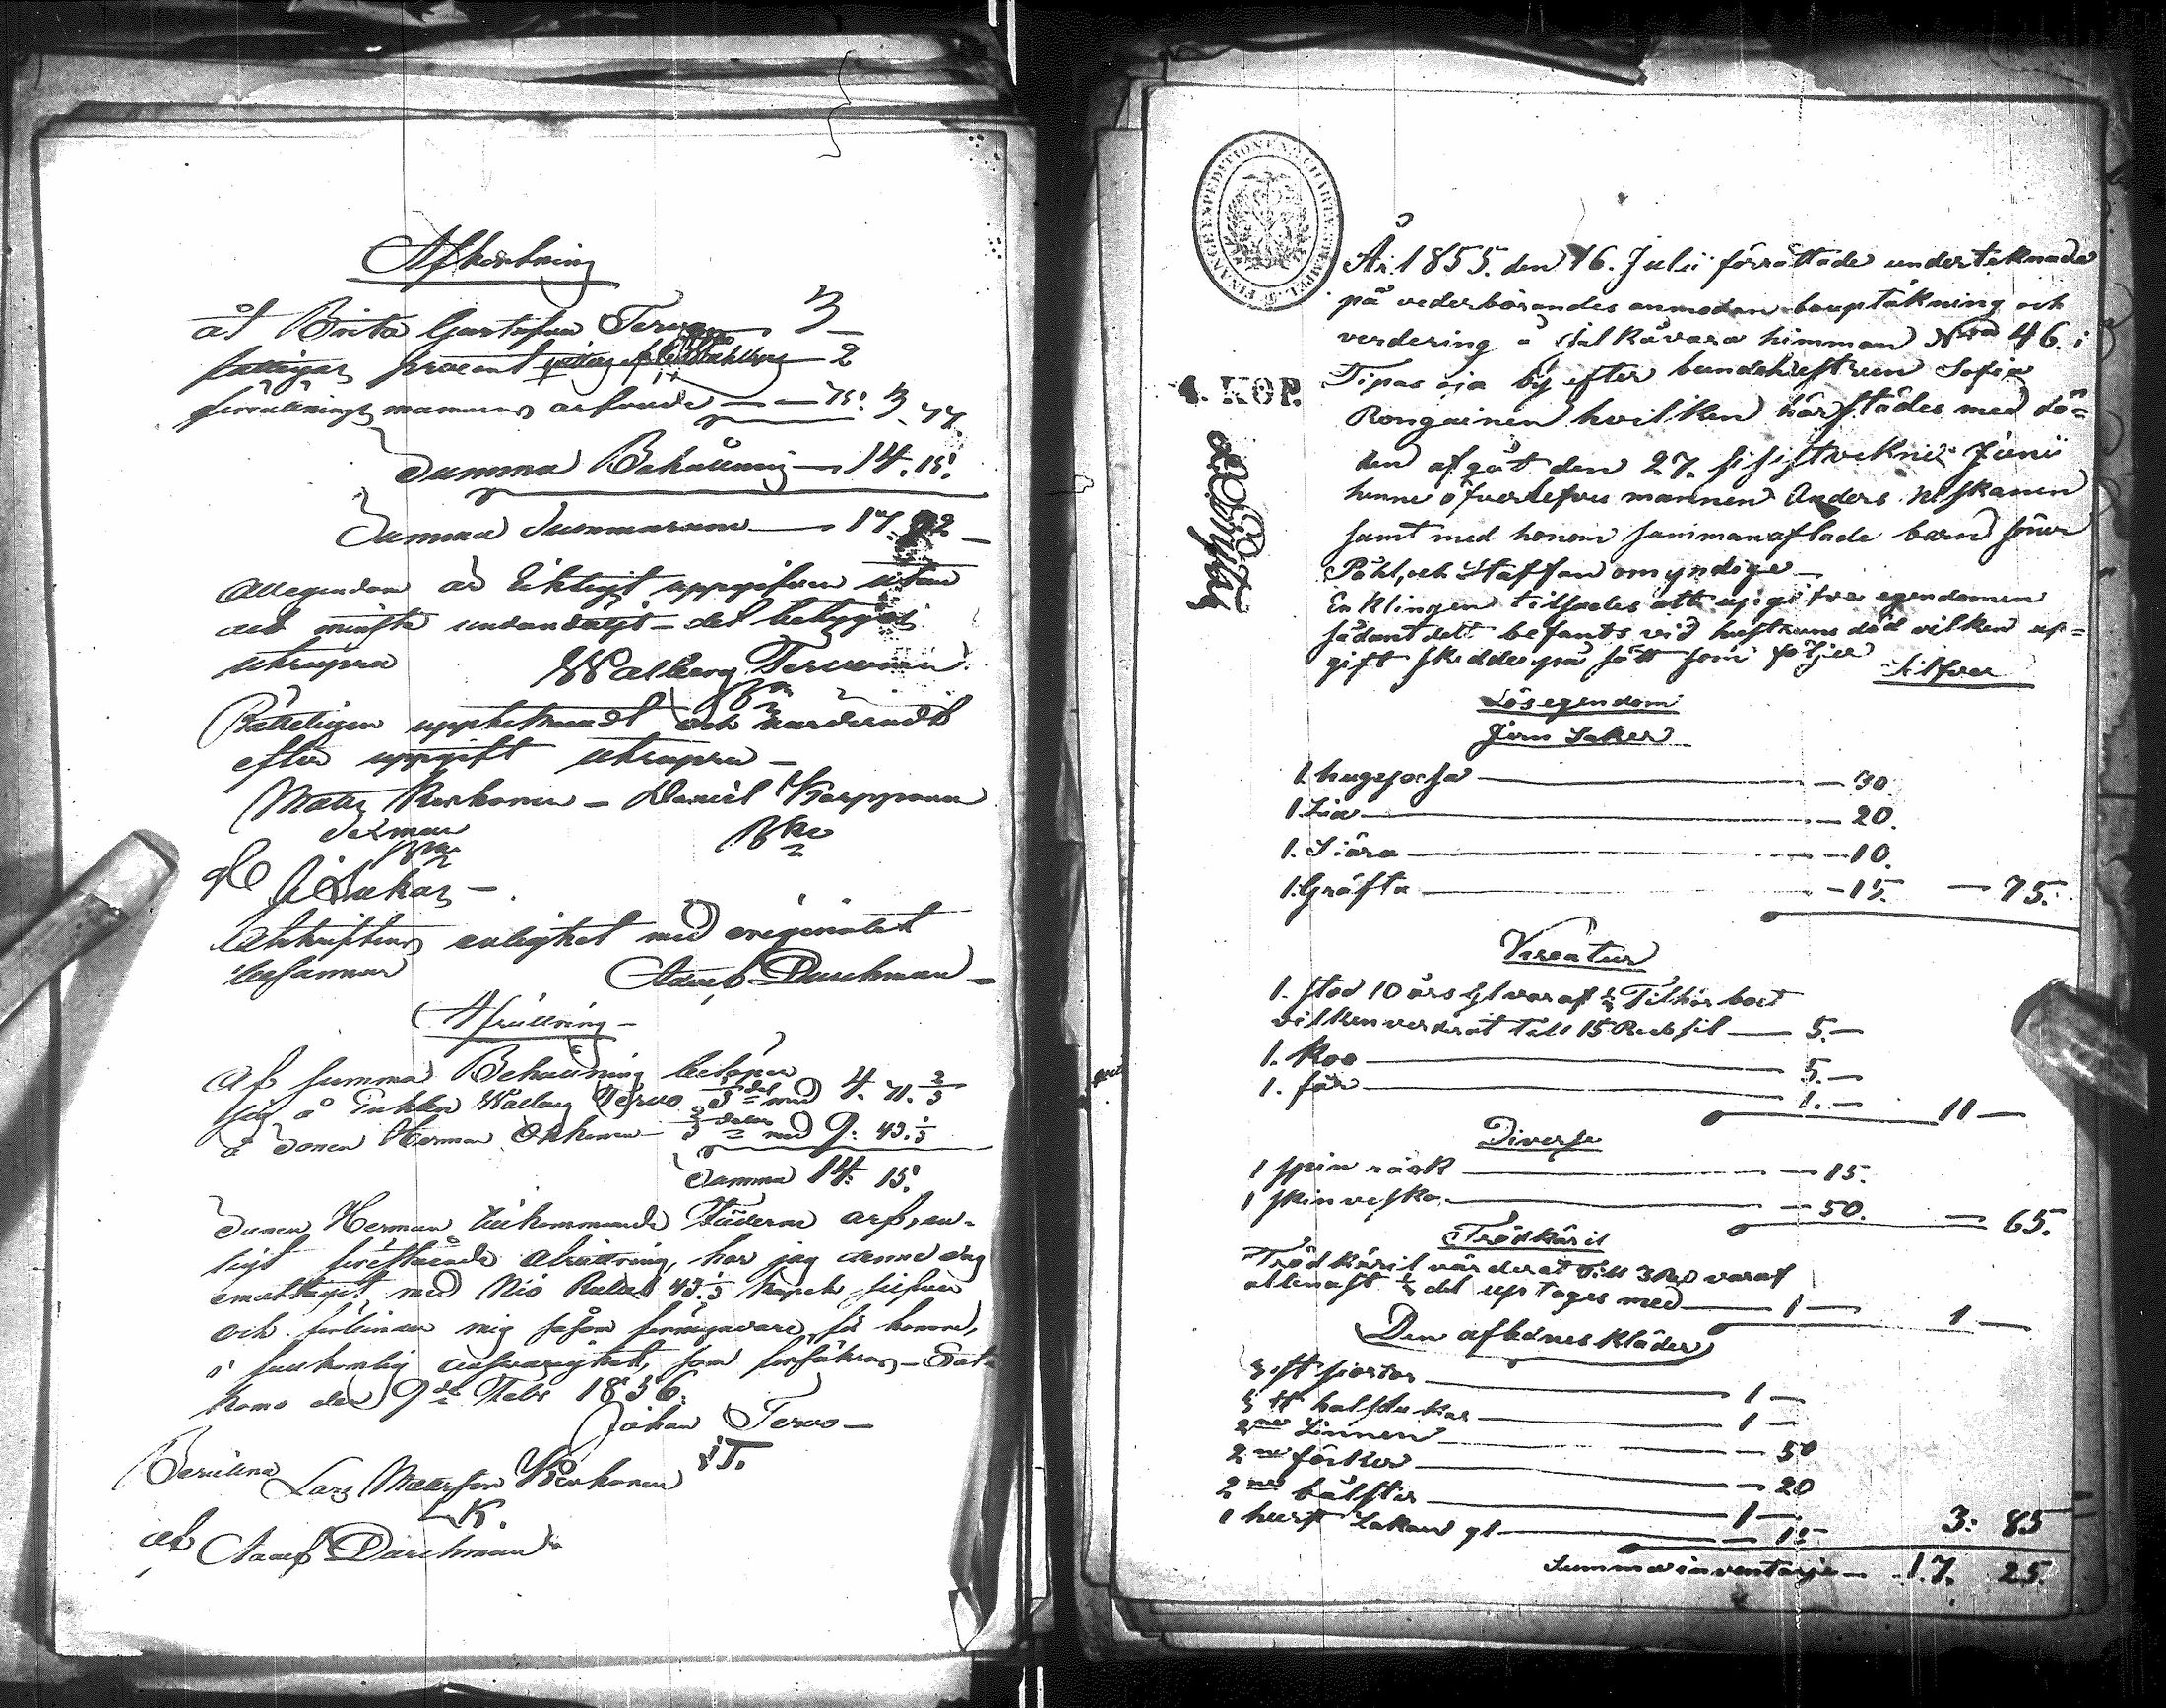 Afkortning
åt Brita Gustafva Tervo 3 —
fattigas procent 2
förrättnings mannens arfvode — — 75. 3. 77.
Summa Behållning — 14. 15.
Summa Summarum — 17. 92 —
All egendom är riktigt uppgifven utan
det minsta undandöljt — det betygas
utsupra Walborg Tervonen
Rätteligen upptecknadt och värderadt
efter uppgift utsupra —
Matts Korhonen — Daniel Karppinen
Sexman
J. Lukas —
Afskriftens enlighet med originalet
bestämmer Adolf Durchman —
Afvittring —
Af summa Behållning belöper
sig å Enkan Walborg Tervo 1/3 del med 4. 71. 2/3
å Sonen Herman 2/3 delar med 9. 43. 1/3
Summa 14. 15.
Sonen Herman tillkommande fäderne arf, en-
ligt föreståënde afvittring, har jag denne dag
emottagit med Nio Rubel 43. 1/3 kopek silfver
och förbinder mig såsom förmyndare för honom,
i fullkomlig ansvarighet, som försäkras — Sot-
kamo den 9de Febr 1856.
Johan Tervo —
J T.
Bevittna
Lars Mattsson Korhonen
L K.
af Adolf Durchman
FINANCE EXPEDITIONEN CHARTE STEMPEL
4. KOP.
År 1855. den 16. Julii förrättade underteknade
på vederbörandes anmodan bouptäkning och
verdering å Kåvara himman Nro 46. i
Tipasoja by efter bundehustrun Sofia
Rongainen hvilken härstädes med dö-
den afgåt den 27. sistvekne Junii
henne öfverlefver mannen Anders Niskanen
samt med honom sammanaflade barn söner
Påhl, och Staffan omyndige —
Enklingen tilsades att upgifva egendomen
sådant dett befants vid hustruns död vilken up-
gift skedde på sätt som följer Silfver
Lösegendom
Jern Saker
1. hugsyxa — — 30.
1 Lia — — 20.
1. Siära — — 10.
1. Gräfta — — 15. — 75.
Kreatur
1. stod 10 års gl varaf 1/3 Tilhör boet
vilken verderat till 15 Rub sil — 5. —
1. Koo — 5. —
1. får — 1. — 11 —
Diverse
1 spin råck — — 15.
1 skinveska — — 50. — 65.
Trädkäril
Trädkäril värderat till 3 Rub varaf
allenast 1/3 del uptages med — 1 — 1 —
Den aflednes Kläder
3 st siortor — 1 —
3 st halsdukar — 1 —
2ne Linnen — — 50
2ne förker — — 20
2ne bälster — 1 —
1 hurst Lakan gl — — 15 3: 85
Summa inventarie — 17. 25.